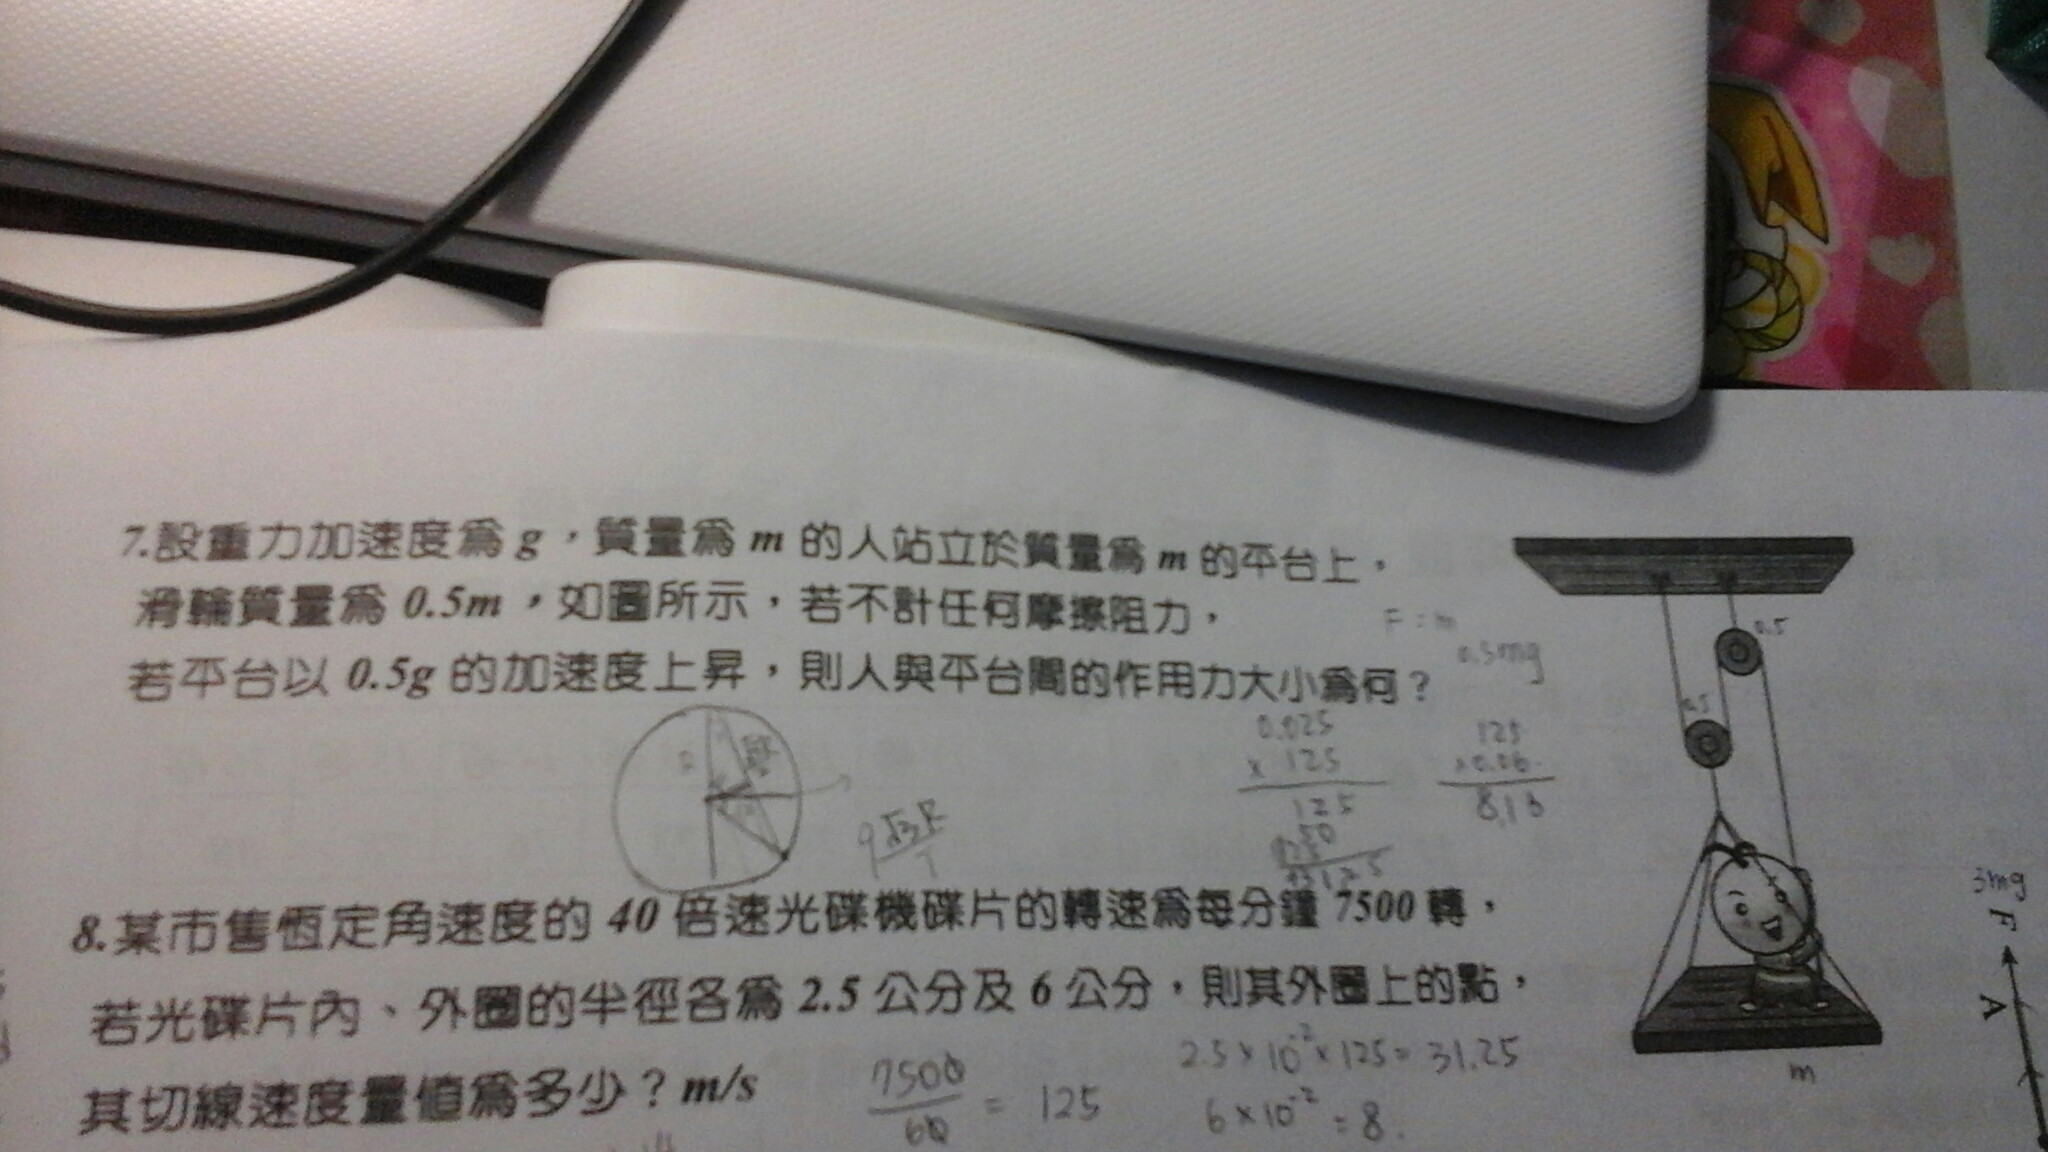 7.設重力加速度為 g，質量為 m 的人站立於質量為 m 的平台上，
滑輪質量為 0.5m，如圖所示，若不計任何摩擦阻力，
若平台以 0.5g 的加速度上昇，則人與平台間的作用力大小為何？
F = m
0.5mg
0.5
0.5
0.025
x 125
125
125
x0.06
8.某市售恆定角速度的 40 倍速光碟機碟片的轉速為每分鐘 7500 轉，
若光碟片內、外圈的半徑各為 2.5 公分及 6 公分，則其外圈上的點，
其切線速度量值為多少？m/s
7500
60
= 125
2.5 x 10⁻² x 125 = 31.25
6 x 10⁻² = 8.
m
3mg
F
A